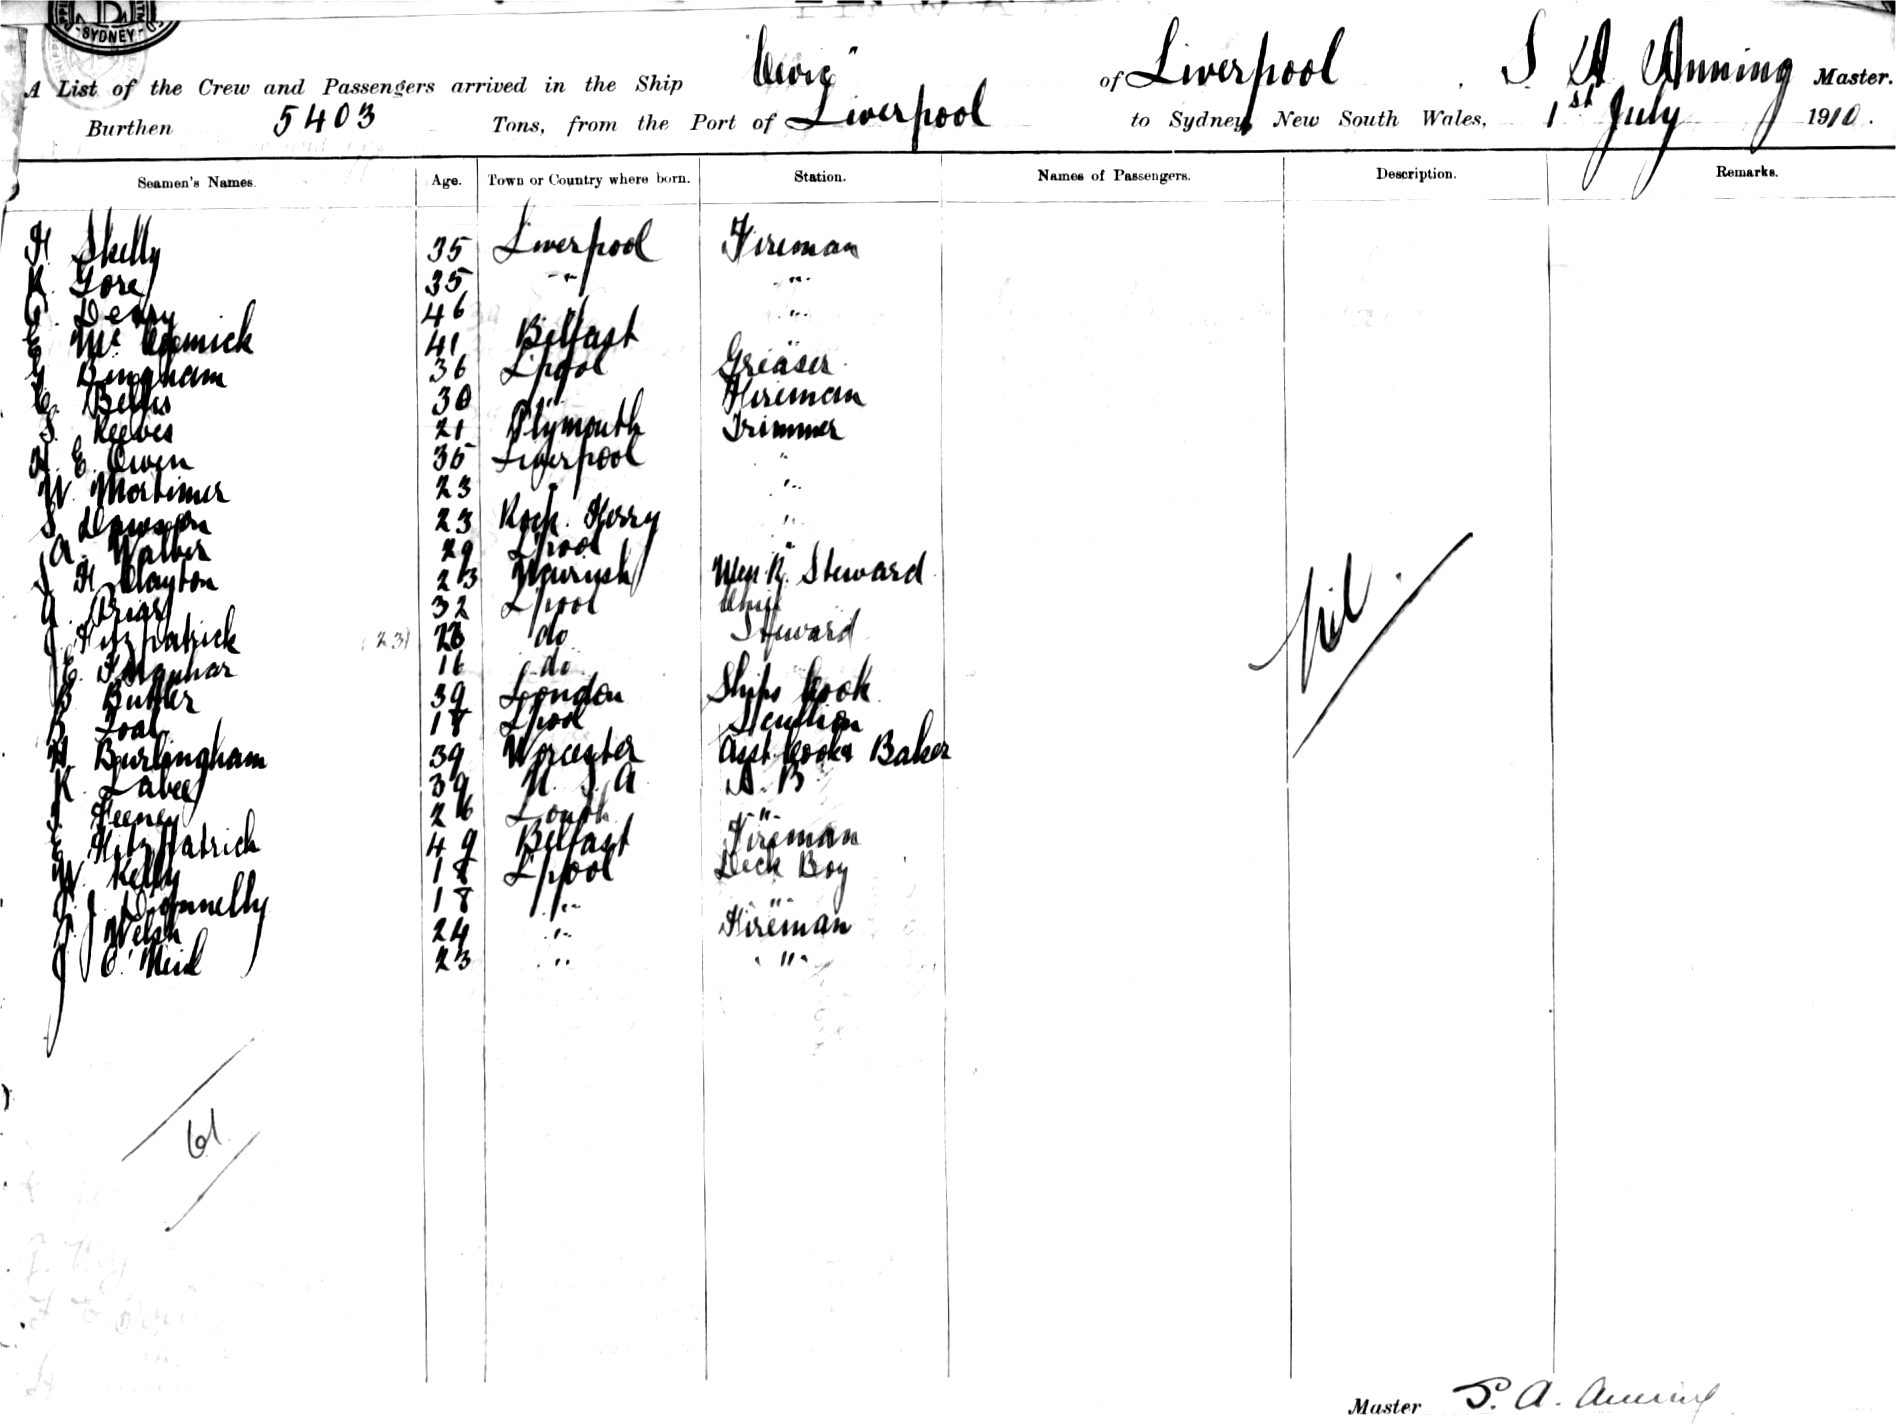 SYDNEY
A List of the Crew and Passengers arrived in the Ship "Cevic" of Liverpool, S. A. Anning Master.
Burthen 5403 Tons, from the Port of Liverpool to Sydney, New South Wales, 1st July 1910.
Seamen's Names. Age. Town or Country where born. Station. Names of Passengers. Description. Remarks.
H Skelly 35 Liverpool Fireman
K. Gore 35 " "
Derry 46 " "
Mc Cormick 41 Belfast "
Bingham 36 L'pool Greaser
C. Bellis 30 " Fireman
S. Reeves 21 Plymouth Trimmer
H. E. Owen 35 Liverpool "
W. Mortimer 23 " "
S. Dawson 23 Rock Ferry "
A. Walber 29 L'pool "
J. H. Clayton 23 Steward
32 L'pool Chief
J. Fitzpatrick (23) 23 do Steward
E. Farquhar 16 do
B Butler 39 London Ships Cook
B. Toal 18 L'pool Scullion
H. Burlingham 39 Worcester Asst. Cook & Baker
K. Labey 39 U. S. A A. B
J. Feeney 26 Louth "
Fitzpatrick 49 Belfast Fireman
W. Kelly 18 L'pool Deck Boy
J. Donnelly 18 " "
J. J Welsh 24 " Fireman
J. O'Neil 23 " "
Nil.
61
Master S. A. Anning